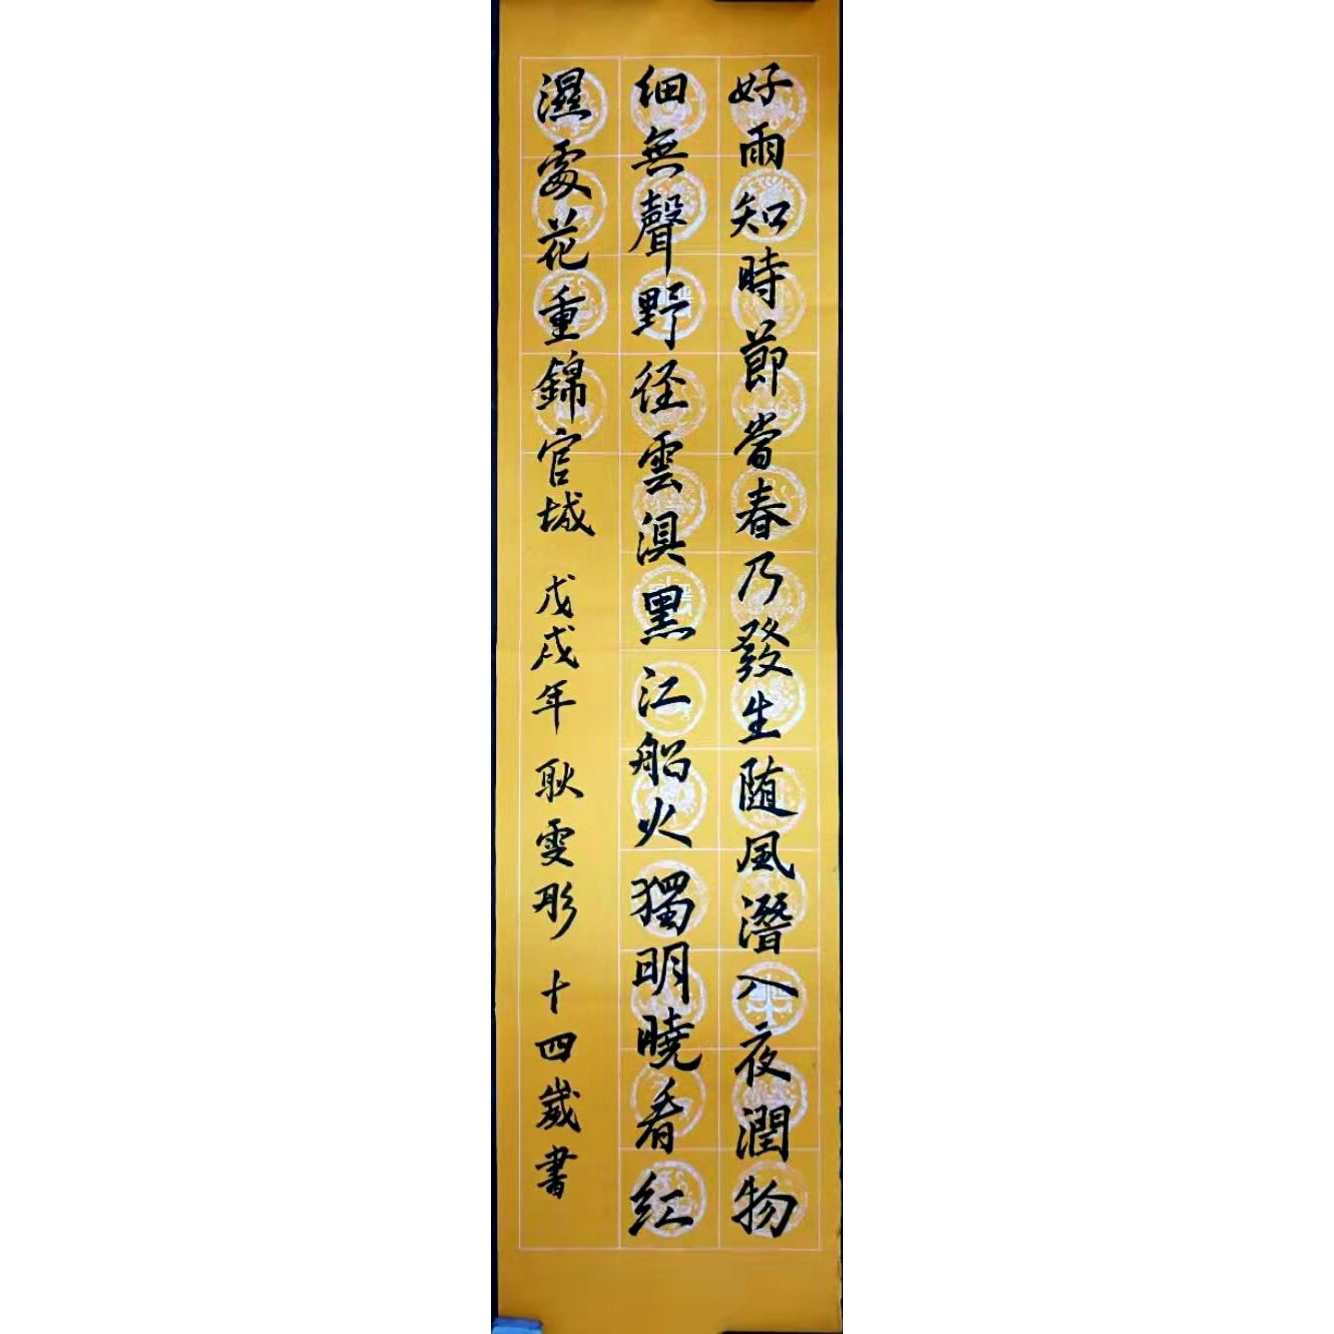 好雨知時節當春乃發生随風潛入夜潤物
細無聲野径雲俱黑江船火獨明曉看紅
濕處花重錦官城 戊戌年 耿雯彤 十四歲書